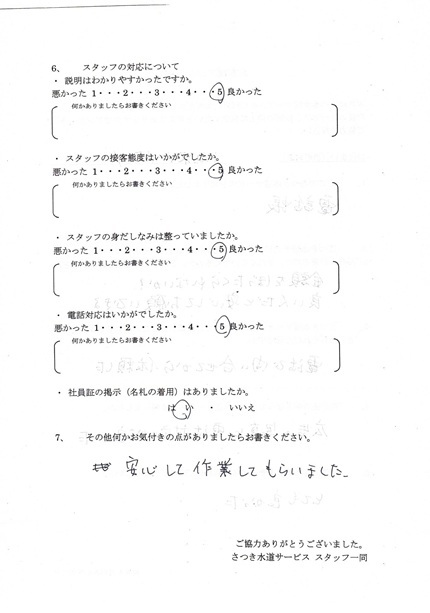 6、 スタッフの対応について
・ 説明はわかりやすかったですか。
悪かった 1・・・2・・・3・・・4・・・5 良かった
何かありましたらお書きください
・ スタッフの接客態度はいかがでしたか。
悪かった 1・・・2・・・3・・・4・・・5 良かった
何かありましたらお書きください
・ スタッフの身だしなみは整っていましたか。
悪かった 1・・・2・・・3・・・4・・・5 良かった
何かありましたらお書きください
・ 電話対応はいかがでしたか。
悪かった 1・・・2・・・3・・・4・・・5 良かった
何かありましたらお書きください
・ 社員証の掲示（名札の着用）はありましたか。
はい ・ いいえ
7、 その他何かお気付きの点がありましたらお書きください。
安心して作業してもらいました。
ご協力ありがとうございました。
さつき水道サービス スタッフ一同